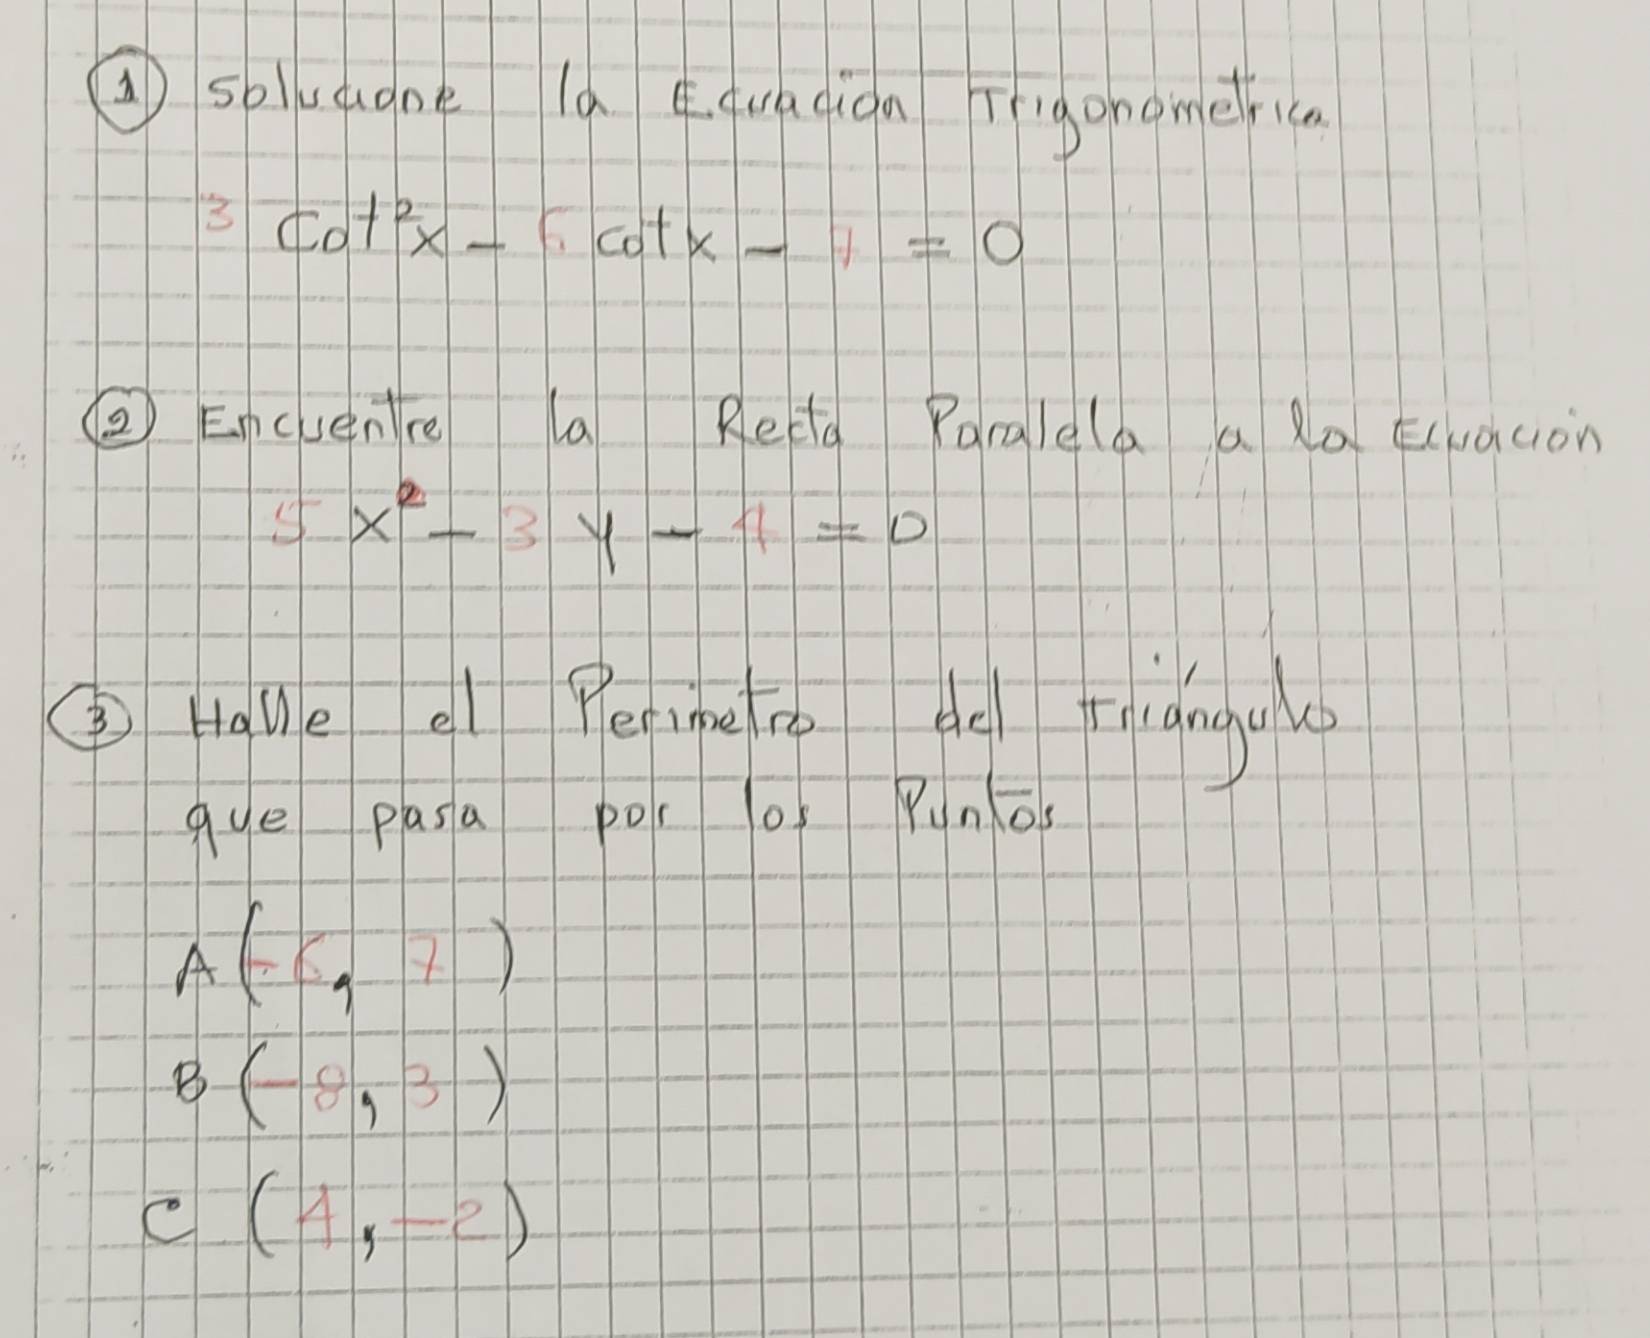 ① Solucione la Ecuación Trigonometrica
3 cot²x - 6 cotx - 7 = 0
② Encuentre la Recta Paralela a la Ecuación
5 x² - 3 y - 4 = 0
③ Halle el Perimetro del triángulo
que pasa por los Puntos
A (-6, 7)
B (-8, 3)
C (4, -2)